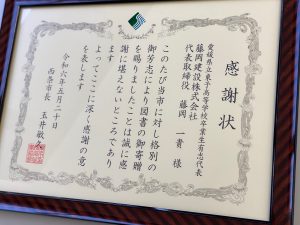 感謝状
愛媛県立東予高等学校卒業生有志代表
藤岡建設株式会社
代表取締役 藤岡 一貴 様
このたび当市に対し格別の
御芳志により図書の御寄贈
を賜りましたことは誠に感
謝に堪えないところであり
ます
よってここに深く感謝の意
を表します
令和六年五月二十日
西条市長 玉井敏久